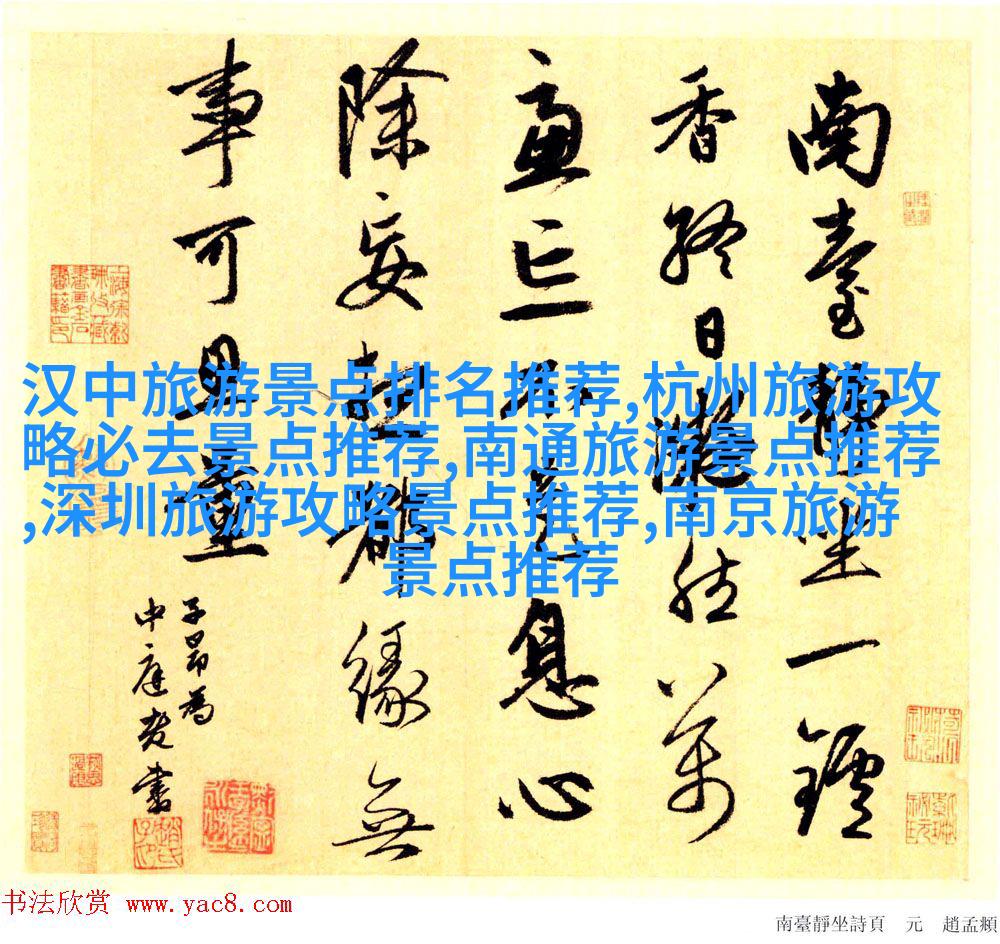 南臺靜坐一鑪
香終日凝然萬
慮亡不是息心
除妄想都緣無
事可思量
子昂為
中庭老書
汉中旅游景点排名推荐,杭州旅游攻
略必去景点推荐,南通旅游景点推荐
,深圳旅游攻略景点推荐,南京旅游
景点推荐
书法欣赏 www.yac8.com
南臺靜坐詩頁 元 趙孟頫